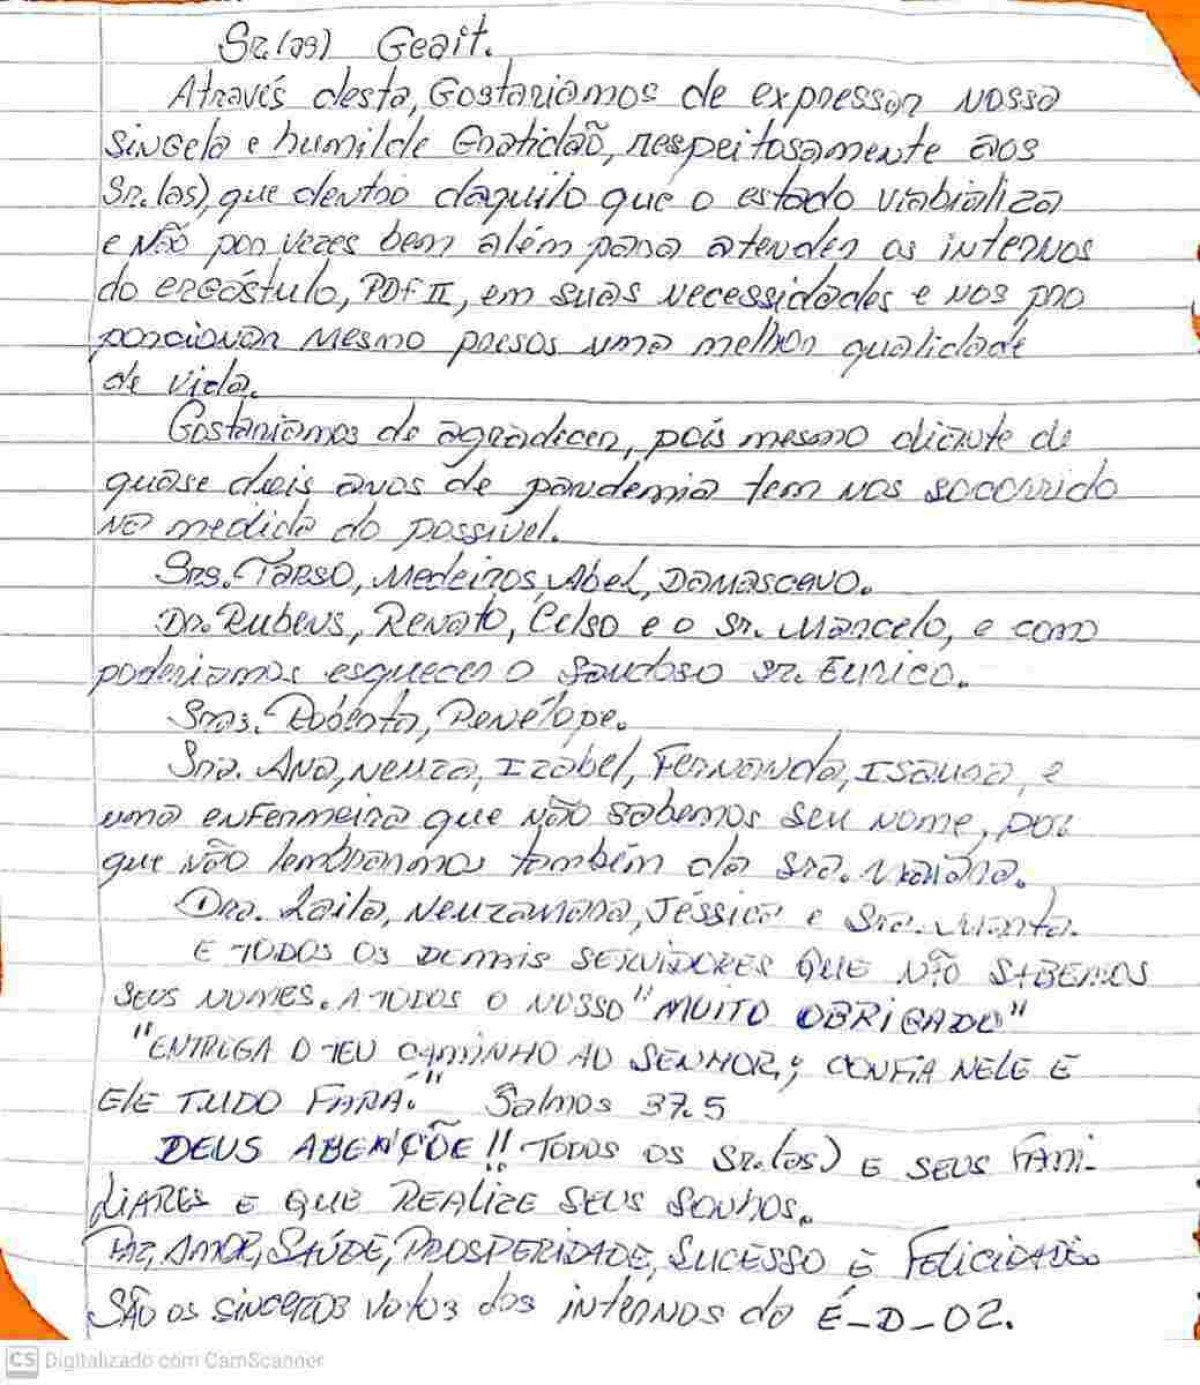 Sr.(as) Geait.
Através desta, Gostariamos de expressar nossa
singela e humilde Gratidão, respeitosamente aos
Sr.(as), que dentro daquilo que o estado viabializa
e não por vezes bem além para atender os internos
do ergóstulo, PDF II, em suas necessidades e nos pro
porcionar mesmo presos uma melhor qualidade
de vida.
Gostariamos de agradecer, pois mesmo diante de
quase dois anos de pandemia tem nos socorrido
na medida do possivel.
Srs. Tarso, Medeiros, Abel, Damasceno.
Dr. Rubens, Renato, Celso e o Sr. Marcelo, e como
poderiamos esquecer o saudoso Sr. Eurico.
Sras. Roberta, Penélope.
Sra. Ana, Neuza, Izabel, Fernanda, Isaura, e
uma enfermeira que não sabemos seu nome, por
que não lembrarmos também da Sra.
Dra. Laila, Neuzamara, Jéssica e Sra. Marta.
E TODOS OS DEMAIS SERVIDORES QUE NÃO SABEMOS
SEUS NOMES. A TODOS O NOSSO "MUITO OBRIGADO"
"ENTREGA O TEU CAMINHO AO SENHOR; CONFIA NELE E
ELE TUDO FARÁ." Salmos 37.5
DEUS ABENÇÕE!! TODOS OS Sr.(as) E SEUS FAMI-
LIARES E QUE REALIZE SEUS SONHOS.
PAZ, AMOR, SAÚDE, PROSPERIDADE, SUCESSO E FELICIDADES
SÃO OS SINCEROS Votos dos internos do É-D-02.
CS Digitalizado com CamScanner